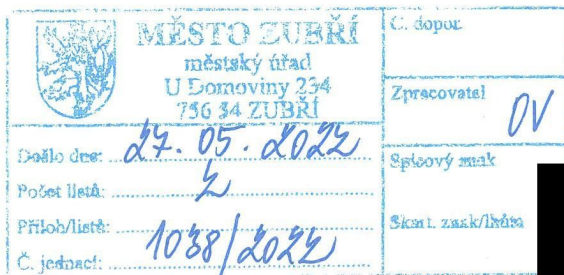 MĚSTO ZUBŘÍ
městský úřad
U Domoviny 234
756 54 ZUBŘÍ
Došlo dne: 27. 05. 2022
Počet listů: 2
Příloh/listů:
Č. jednací: 1038/2022
Č. dopor.
Zpracovatel
OV
Spisový znak
Skart. znak/lhůta